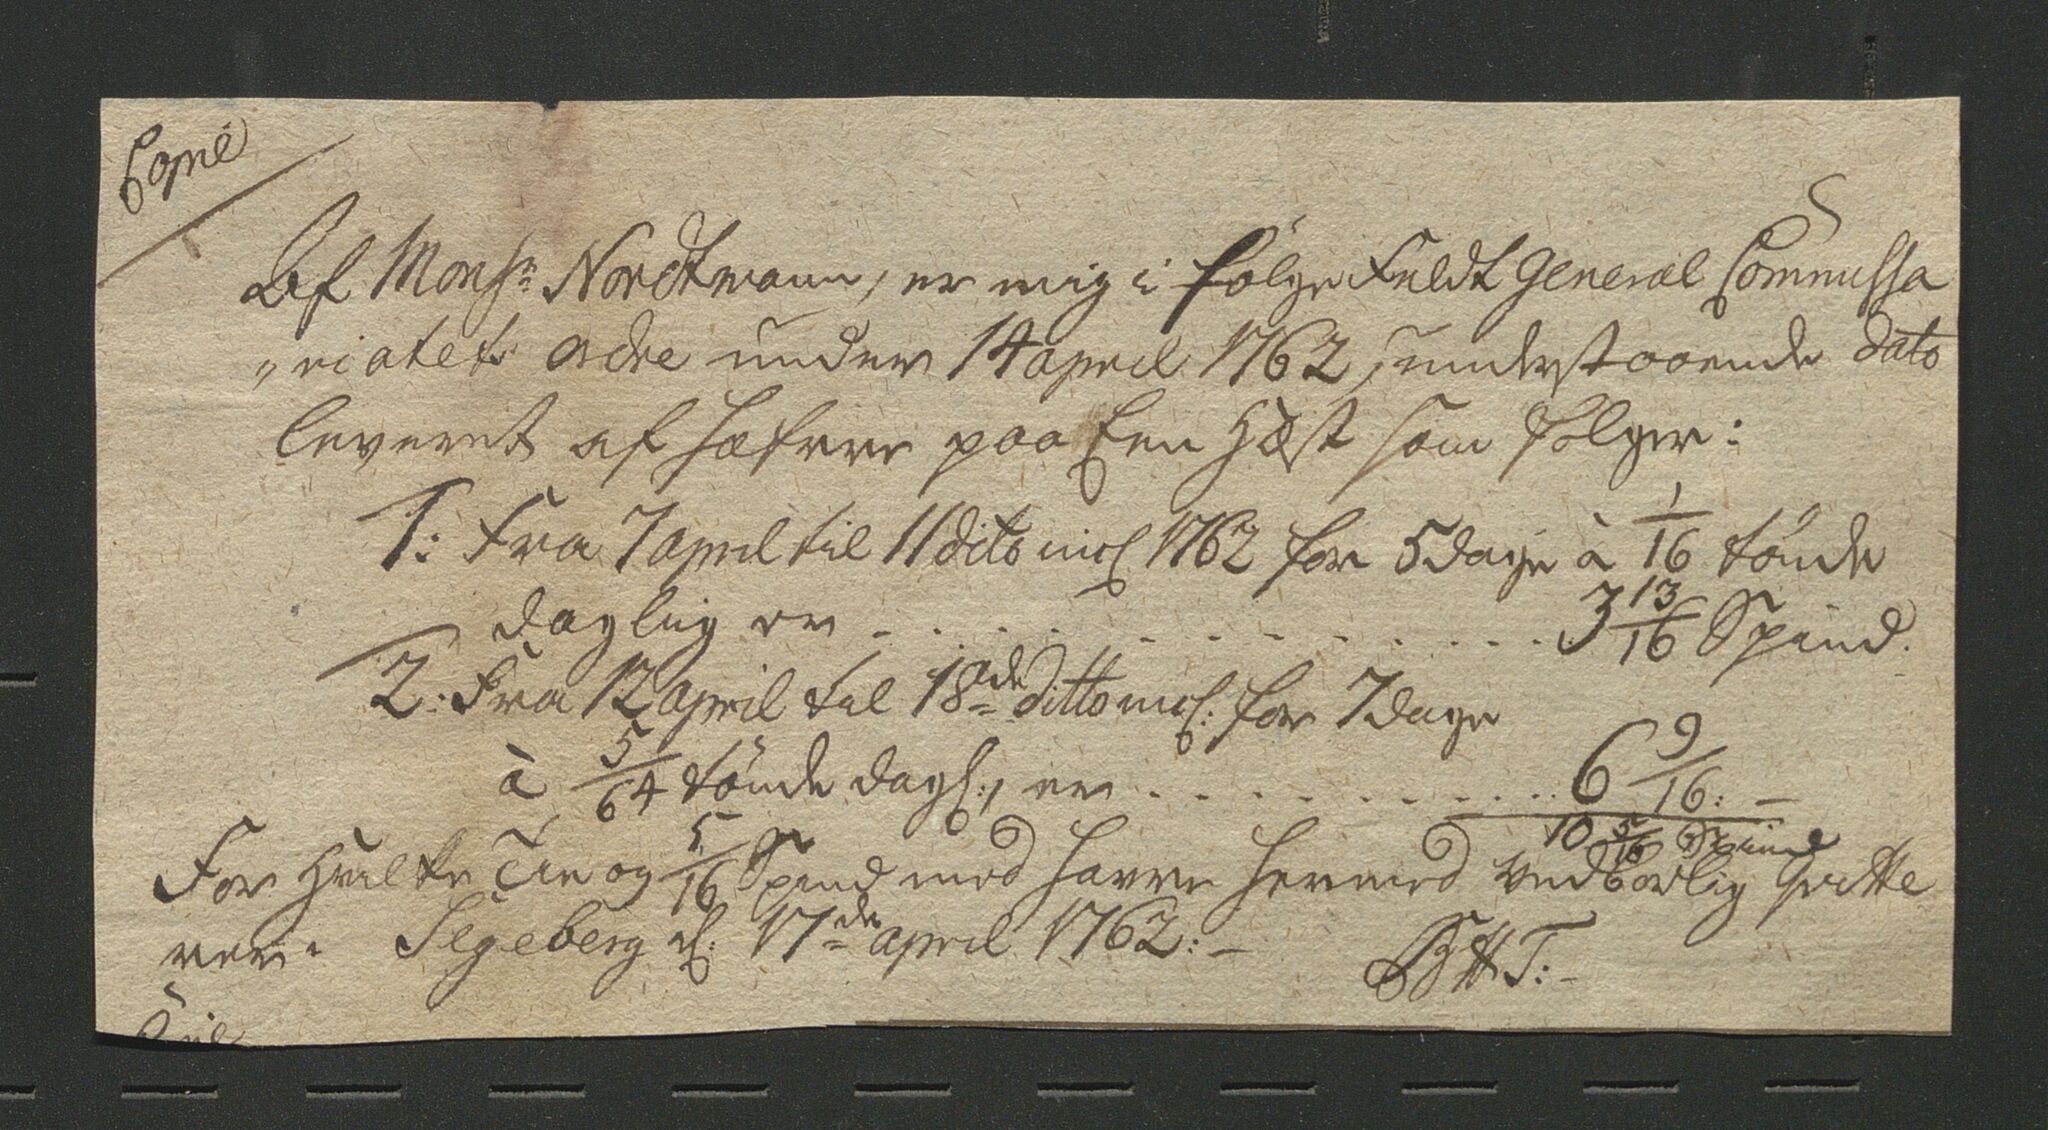 Copie
Af Monsr. Nordtmann, er mig i følge Feldt General Commissa
"riatets ordre under 14 april 1762, understaaende dato
leveret af Hafvre paa Een Hæst som følger:
1: Fra 7 april til 11 dito incl 1762 for 5 dage à 1/16 tønde
daglig er - . . . . . . . . . . . . 3 13/16 Spind.
2: Fra 12 april til 18de ditto incl: for 7 dage
à 5/64 tønde dagl:, er . . . . . . . . . . 6 9/16: -
10 5/16 Spind
For hvilke Tie og 5/16 Spind med Havre hermed vedbørlig qvitte
rer. Segeberg d: 17de april 1762: -
BHT: -